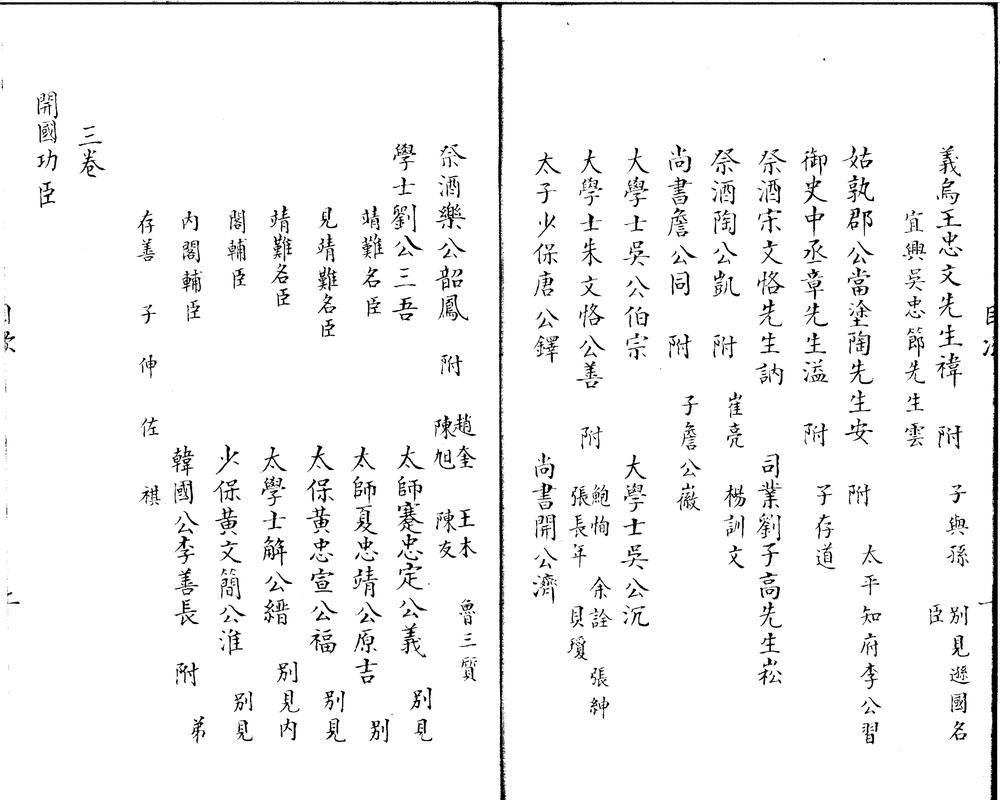 義烏王忠文先生禕 附 子與孫 別見遜國名臣
宜興吳忠節先生雲
姑孰郡公當塗陶先生安 附 太平知府李公習
御史中丞章先生溢 附 子存道
祭酒宋文恪先生訥 司業劉子高先生崧
祭酒陶公凱 附 崔亮 楊訓文
尚書詹公同 附 子詹公徽
大學士吳公伯宗 大學士吳公沉
大學士朱文恪公善 附 鮑恂 余詮 張紳 張長年 貝瓊
太子少保唐公鐸 尚書開公濟
祭酒樂公韶鳳 附 趙奎 王本 魯三質 陳旭 陳友
學士劉公三吾 太師蹇忠定公義 別見
靖難名臣 太師夏忠靖公原吉 別
見靖難名臣 太保黃忠宣公福 別見
靖難名臣 太學士解公縉 別見內
閣輔臣 少保黃文簡公淮 別見
內閣輔臣 韓國公李善長 附 弟
存善 子伸 佐 祺
三卷
開國功臣